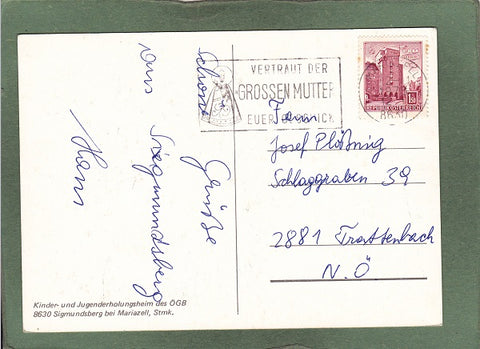 Schöne Grüße
aus Siegmundsberg
Hans
Kinder- und Jugenderholungsheim des ÖGB
8630 Sigmundsberg bei Mariazell, Stmk.
VERTRAUT DER
GROSSEN MUTTER
EUER
REPUBLIK ÖSTERREICH
Herrn
Josef Plößnig
Schlaggraben 39
2881 Trattenbach
N.Ö